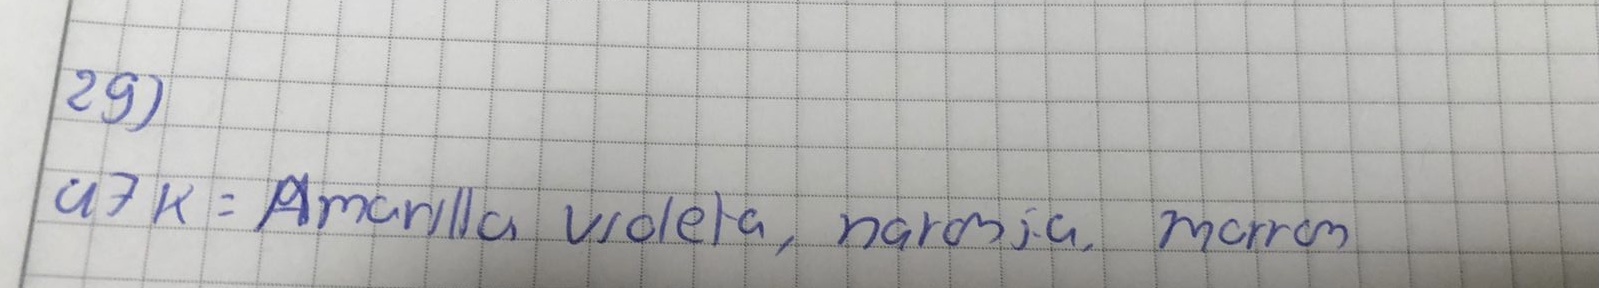 29)
47K = Amarilla violeta, naranja, marron